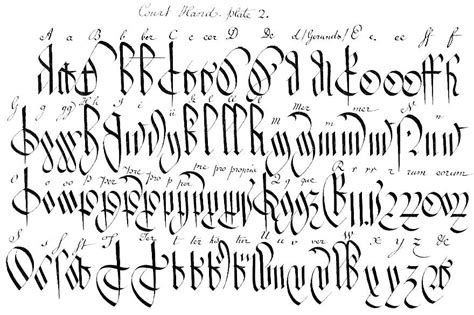 Court Hand. plate 2.
A a B b ber C c cer D De d (Gerunds) E e. ee ff f
G g gg H h I i k l ll M mer m mer N n
O o oo P Per Pre Pro p per pre pro propria Q q que R r rr z rum eorum
S s ſ ſt T Ter t ter tis tur U u v ver W x y z &c